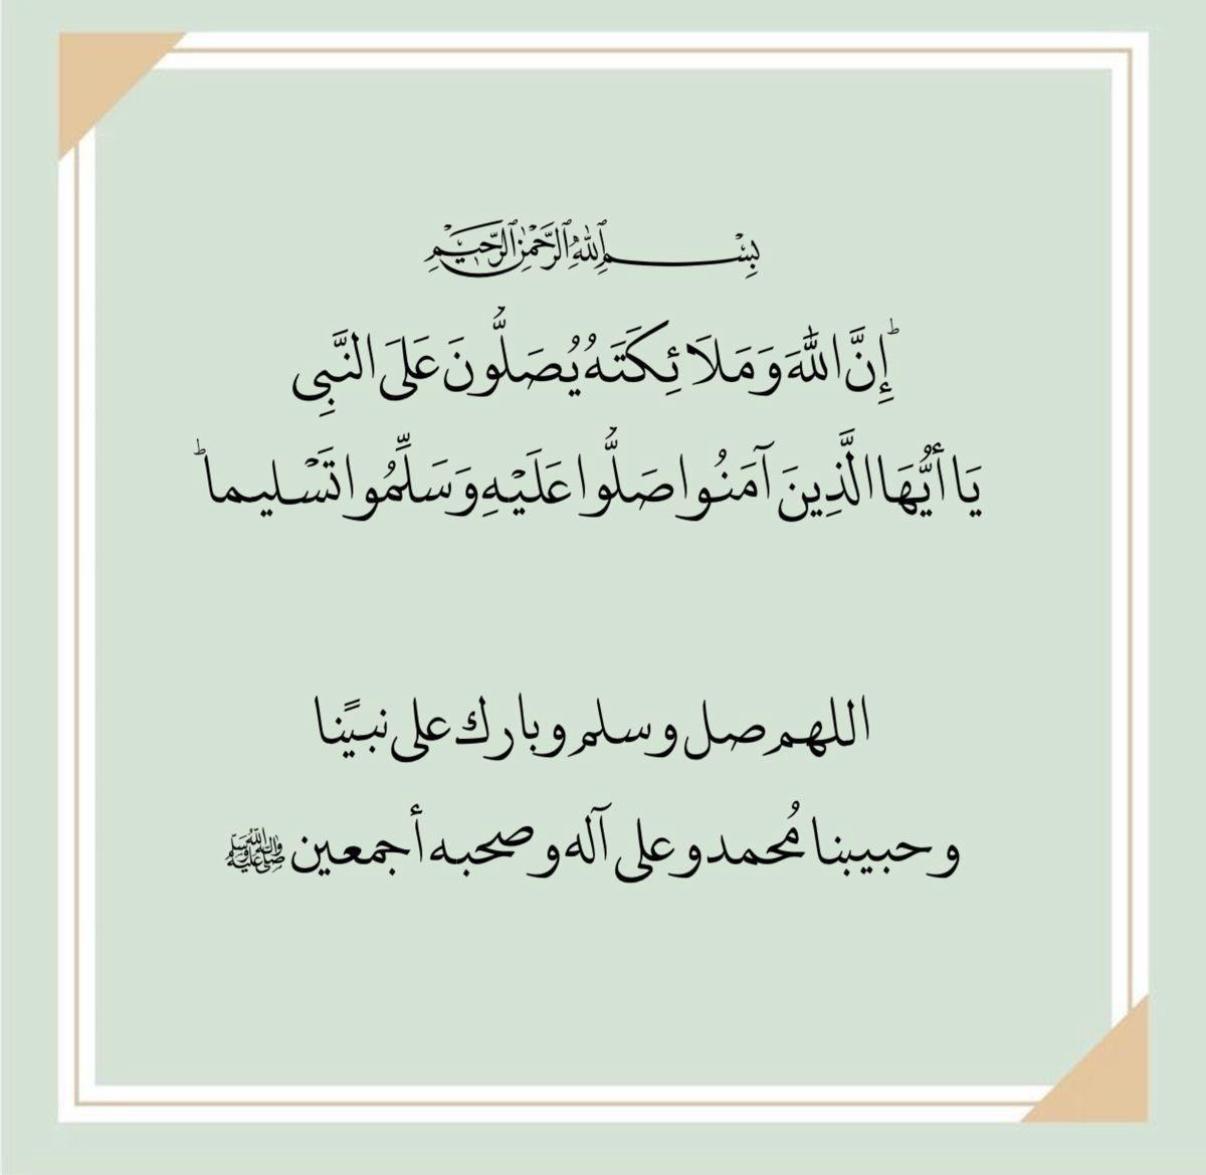 بِسْمِ ٱللَّهِ ٱلرَّحْمَٰنِ ٱلرَّحِيمِ
إِنَّ اللَّهَ وَمَلَائِكَتَهُ يُصَلُّونَ عَلَى النَّبِى
يَا أَيُّهَا الَّذِينَ آمَنُوا صَلُّوا عَلَيْهِ وَسَلِّمُوا تَسْليما
اللهم صل وسلم وبارك على نبيًنا
وحبيبنا مُحمد وعلى آله وصحبه أجمعين ﷺ